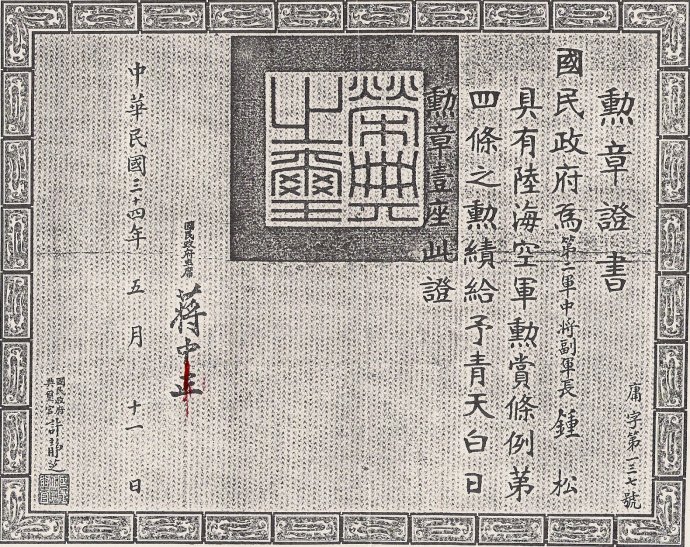 勳章證書
國民政府為第二軍中將副軍長鍾松
具有陸海空軍勳賞條例第
四條之勳績給予青天白日
勳章壹座此證
庸字第一三七號
榮典之璽
國民政府主席
蔣中正
中華民國三十四年五月十一日
國民政府
典璽官許靜芝